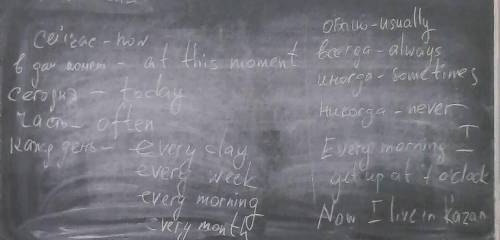 сейчас - now
в дан момент - at this moment
сегодня - today
часто - often
кажд день - every day
every week
every morning
every month
обычно - usually
всегда - always
иногда - sometimes
никогда - never
Every morning I
get up at 7 o'clock
Now I live in Kazan